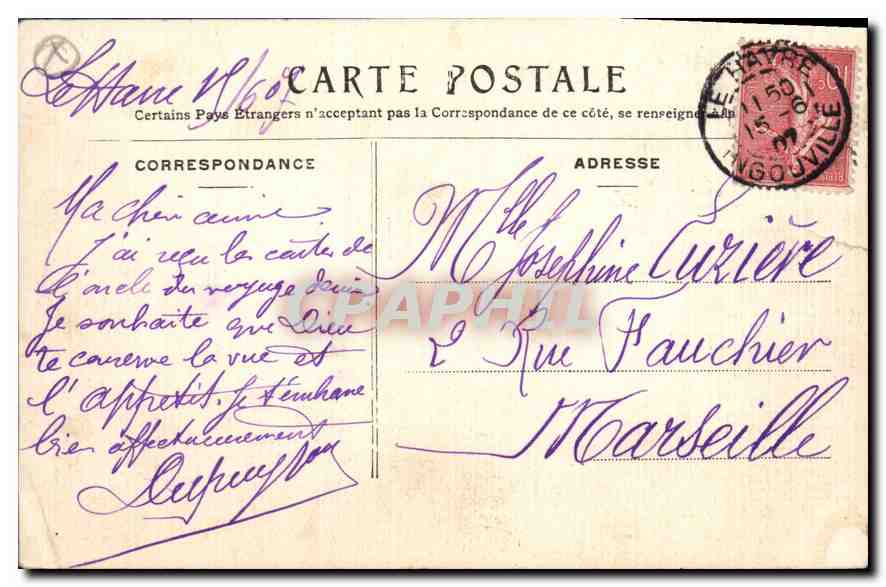 Le Havre 15/6 07
CARTE POSTALE
Certains Pays Étrangers n'acceptant pas la Correspondance de ce côté, se renseigner à la
CORRESPONDANCE
ADRESSE
LE HAVRE
11 50
15 - 6
07
INGOUVILLE
10
Ma chère amie
J'ai reçu les cartes de
l'oncle du voyage
Je souhaite que Dieu
te conserve la vue et
l'appétit. Je t'embrasse
bien affectueusement
Dupuy
Mlle Josephine Cuzière
2 Rue Fauchier
Marseille
CPAPHIL